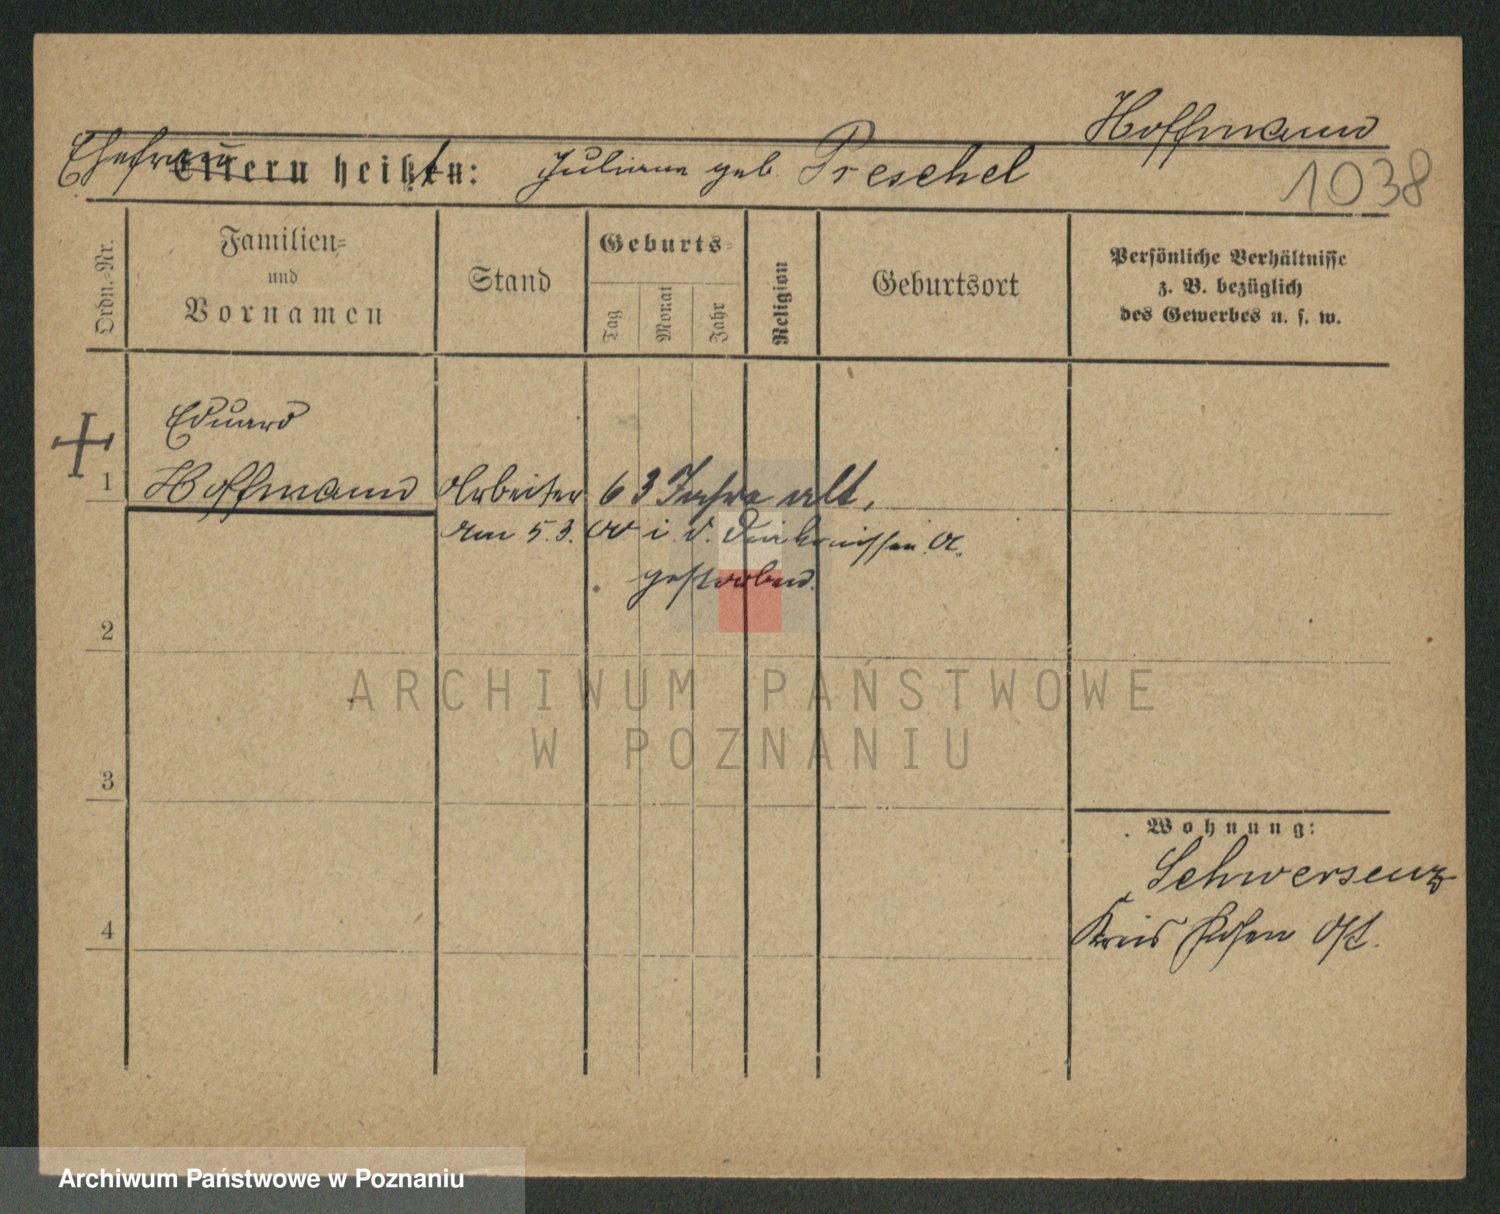 Hoffmann
Ehefrau Eltern heißt: Juliane geb. Preschel
1038
Ordn.-Nr.
Familien-
und
Vornamen
Stand
Geburts-
Tag
Monat
Jahr
Religion
Geburtsort
Persönliche Verhältnisse
z. B. bezüglich
des Gewerbes u. s. w.
Eduard
1 Hoffmann Arbeiter 63 Jahre alt,
am 5.3. 00 i. d. Diakonissen A.
gestorben.
2
ARCHIWUM PAŃSTWOWE
W POZNANIU
3
Wohnung:
Schwersenz
4
Kreis Posen Ost.
Archiwum Państwowe w Poznaniu